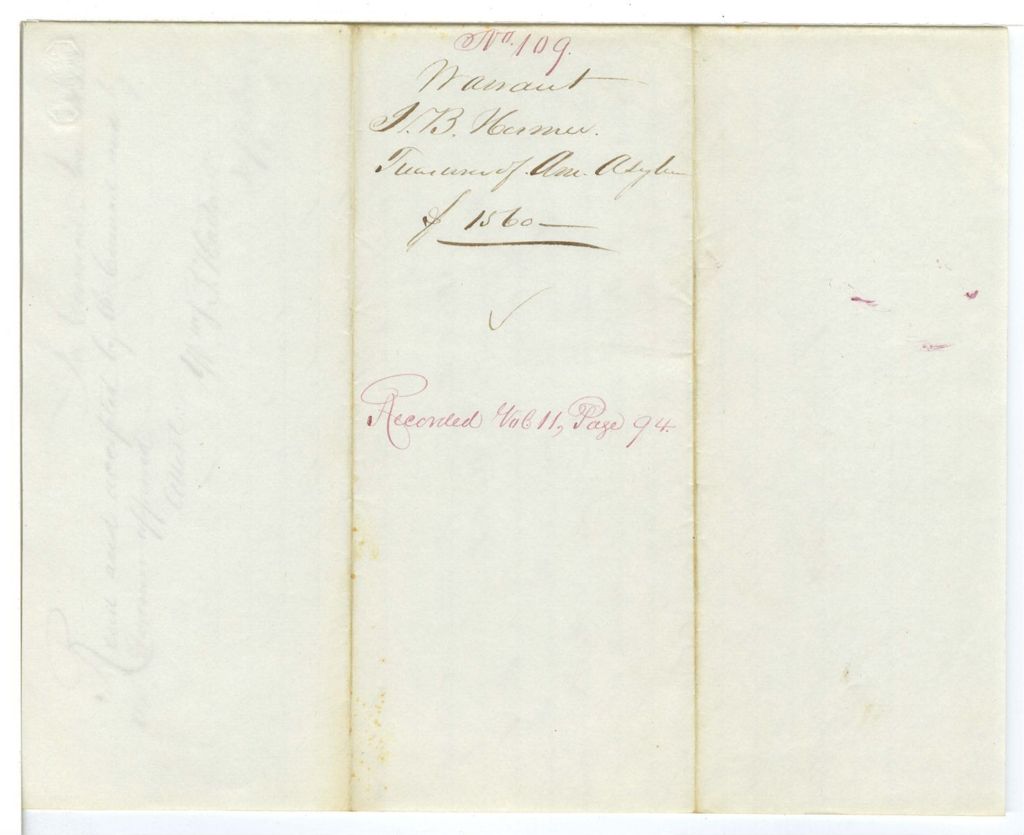 No. 109.
Warrant
J. B. Hosmer.
Treasurer of Am. Asylum
$ 1560—
Recorded Vol 11, Page 94.